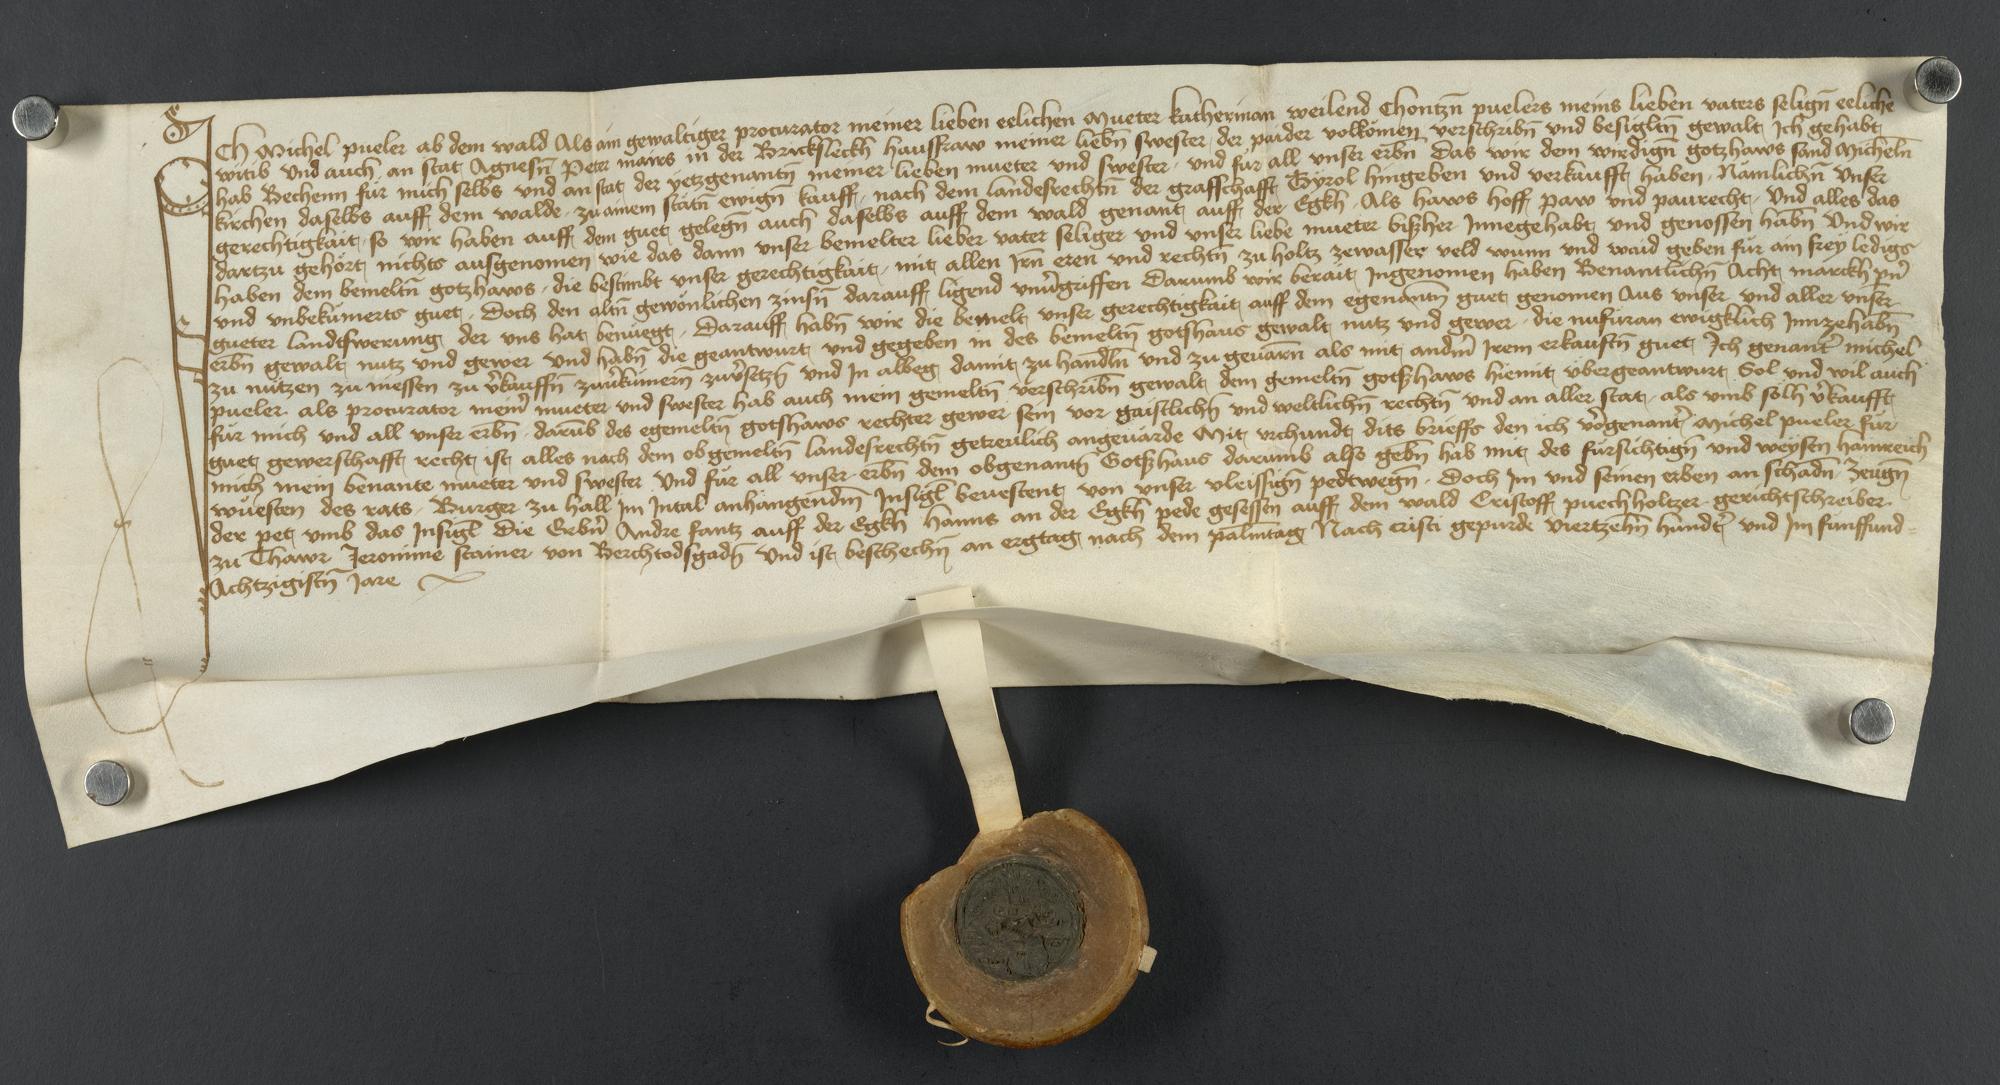 ICh Michel pueler ab dem wald Als ain gewaltiger procurator meiner lieben eelichen Mueter katherinan weilend Chontzn̄ puelers meins lieben vaters selign̄ eeliche
witib Vnd auch an stat Agnesn̄ Peter mairs in der Bricksleckh hausfraw meiner liebn̄ swester der paider volkömen verschribn̄ vnd besigltn̄ gewalt Ich gehabt
hab Bechenn für mich selbs vnd an stat der yetzgenantn̄ meiner lieben mueter vnd swester vnd für all vnser erbn̄ Das wir dem wirdign̄ gotzhaws sand Micheln̄
kirchen daselbs auff dem walde zu ainem stätn̄ ewign̄ kauff nach dem landesrechtn̄ der graffschafft Tyrol hingeben vnd verkaufft haben Nämlichn̄ vnser
gerechtigkait so wir haben auff dem guet gelegn̄ auch daselbs auff dem wald genant auff der Egkh Als haws hoff paw vnd paurecht Vnd alles das
dartzu gehört nichts ausgenomen wie das dann vnser bemelter lieber vater seliger vnd vnser liebe mueter bisher Innegehabt vnd genossen habn̄ Vnd wir
haben dem bemeltn̄ gotzhaws die bestimbt vnser gerechtigkait mit allen Irn̄ eren vnd rechtn̄ zu holtz zewasser veld wunn vnd waid geben für ain frey ledigs
vnd vnbekümerts guet Doch den altn̄ gewönlichen zinsn̄ darauff ligend vnu̕griffen Darumb wir berait Ingenomen haben Benantlichn̄ Acht marckh pn̕
gueter landtswerung der vns hat benüegt Darauff habn̄ wir die bemelt vnser gerechtigkait auff dem egenantn̄ guet genomen Aus vnser vnd aller vnser
erbn̄ gewalt nutz vnd gewer vnd habn̄ die geantwurt vnd gegeben in des bemeltn̄ gotshaus gewalt nutz vnd gewer die nufüran ewigklich Innzehabn̄
zu nützen zu niessen zu v̕kauffn̄ zuu̕kümern̄ zuu̕setzn̄ vnd In albeg damit zu handln̄ vnd zu geuarn̄ als mit andm̕ Irem erkauftn̄ guet Ich genant̕ michel
pueler als procurator mein̕ mueter vnd swester hab auch mein gemeltn̄ verschribn̄ gewalt dem gemeltn̄ gotshaws hiemit vbergeantwurt Sol vnd wil auch
für mich vnd all vnser erbn̄ darūb des egemeltn̄ gotshaws rechter gewer sein vor gaistlichn̄ vnd weltlichn̄ rechtn̄ vnd an aller stat als vmb sölh v̕kaufft
guet gewerschafft recht ist alles nach dem obgemeltn̄ landesrechtn̄ getreulich angeuärde Mit vrchundt dits brieffs den ich vo̕genant̕ Michel pueler für
mich mein benante mueter vnd swester Vnd für all vnser erbn̄ dem obgenantn̄ Gotshaus darumb also gebn̄ hab mit des fürsichtign̄ vnd weysen hainreich
wuesten des rats Burger zu hall Im Intal anhangendm̄ Insigl beuestent von vnser vleissign̄ pedtwegn̄ Doch Im vnd seinen erben an schadn̄ Zeugn̄
der pet vmb das Insigl Die Erbn̕ Andre fantz auff der Egkh hanns an der Egkh pede gesessen auff dem wald Cristoff puechholtzer gerichtschreiber
zu Thawr Jeronime stainer von Berchtodsgadn̄ Vnd ist beschechn̄ an ergtag nach dem palmtag Nach cristi gepurde viertzehn̄ hundt̕ vnd Im funffund-
Achtzigistn̄ Jare